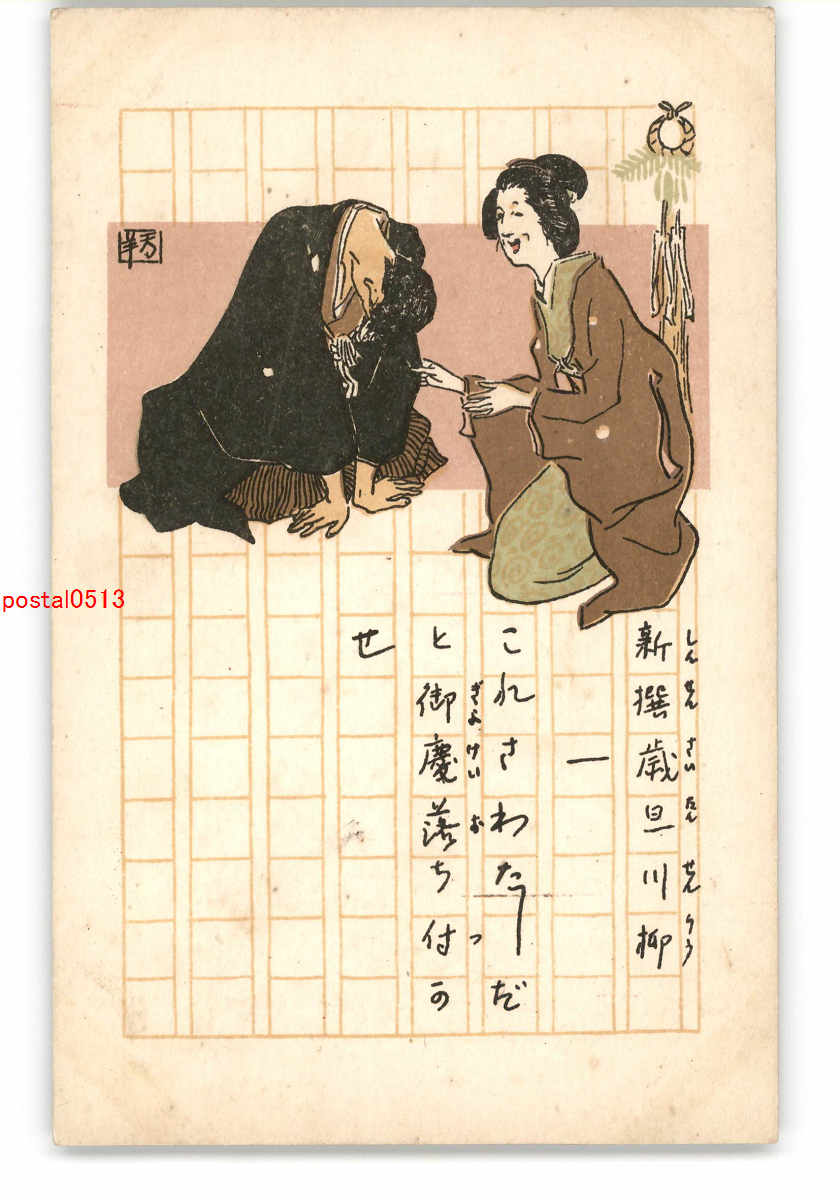 新撰歳旦川柳
しんせんさいたんせんりう
一
これさわたしだ
と御慶落ち付か
ぎよけいおつ
せ
postal0513